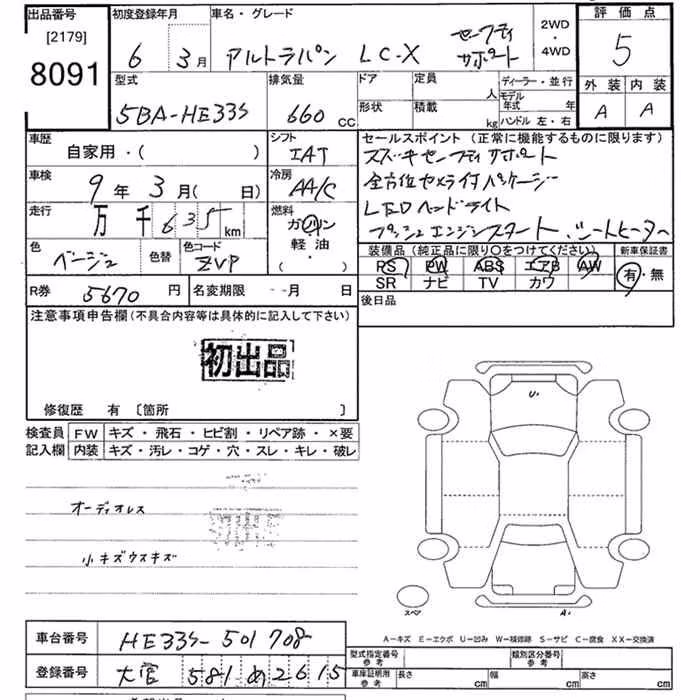 出品番号
[2179]
8091
初度登録年月
6 3月
車名・グレード
アルトラパン LC-X セーフティ サポート
2WD
・
4WD
評価点
5
外装 内装
A A
型式
5BA-HE33S
排気量
660 CC
ドア
形状
定員
人
積載
kg
ディーラー・並行
モデル年式 年
ハンドル 左・右
車歴
自家用・( )
車検
9年3月( 日)
走行
万 千 635 km
色
ベージュ
色替
色コード
ZVP
シフト
IAT
冷房
AA/C
燃料
ガソリン
軽油・
( ・ )
セールスポイント(正常に機能するものに限ります)
スズキセーフティサポート
全方位カメラ付パッケージ
LEDヘッドライト
プッシュエンジンスタート シートヒーター
装備品(純正品に限り〇をつけてください)
PS PW ABS エアB AW
SR ナビ TV カワ
新車保証書
有・無
R券 5670円
名変期限 --月 日
後日品
注意事項申告欄(不具合内容等は具体的に記入して下さい)
初出品
修復歴 有 〔箇所 〕
検査員記入欄
FW キズ・飛石・ヒビ割・リペア跡・×要
内装 キズ・汚レ・コゲ・穴・スレ・キレ・破レ
オーディオレス
小キズウスキズ
U・
スペア
A・
A-キズ E-エクボ U-凹み W-補修跡 S-サビ C-腐食 XX-交換済
車台番号 HE33S-501708
登録番号 大宮 581 め 2615
型式指定番号
参考
類別区分番号
参考
車庫証明用
参考
長さ cm
幅 cm
高さ cm